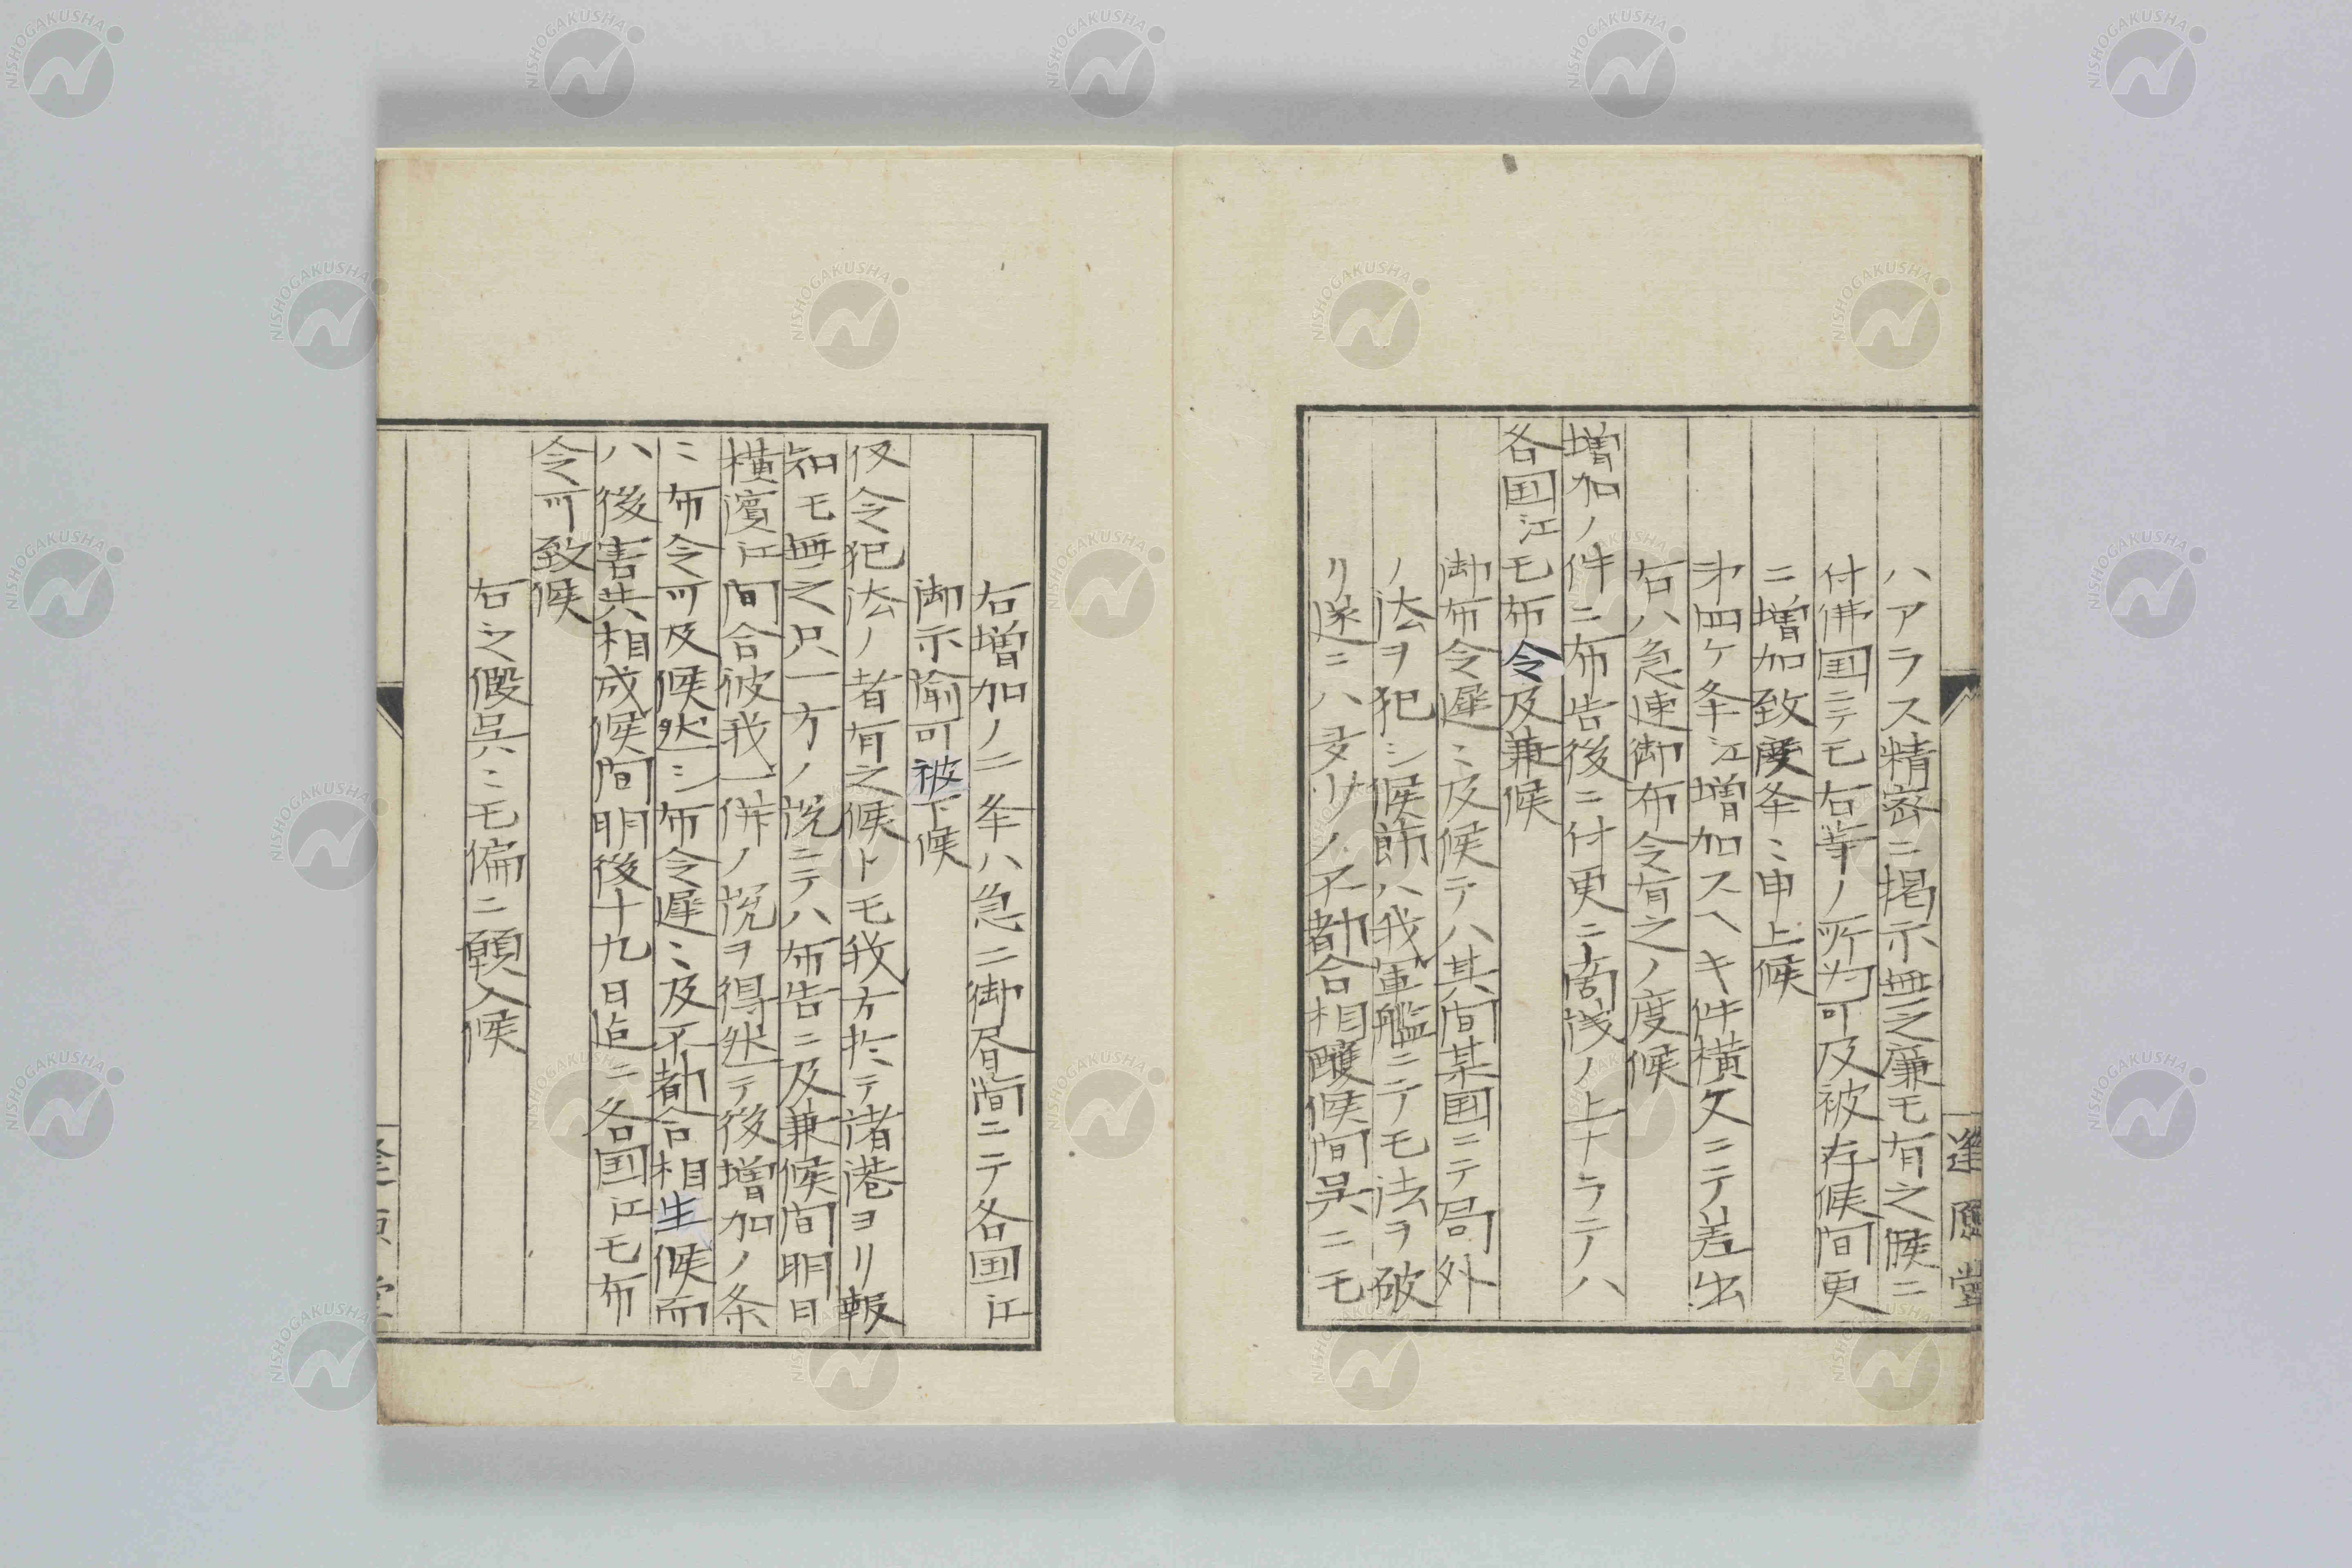 ハアラス精密ニ掲示無之廉モ有之候ニ
付佛国ニテモ右等ノ所為可及被存候間更
ニ増加致度条々申上候
才四ケ条江増加スヘキ件横文ニテ差出
右ハ急速御布令有之ノ度候
増加ノ件ニ布告後ニ付更ニ商議ノ上ナラテハ
各国江モ布令及兼候
御布令遅々及候テハ其間某国ニテ局外
ノ法ヲ犯シ候節ハ我軍艦ニテモ法ヲ破
リ遂ニハ ノ不都合相醸候間呉ニモ
右増加ノ二条ハ急ニ御昼間ニテ各国江
御示諭可被下候
仮令犯法ノ者有之候トモ我方於テ諸港ヨリ報
知モ無之只一方ノ説ニテハ布告ニ及兼候間明日
横濱江間合彼我一併ノ説ヲ得然テ後増加ノ条
ニ布令可及候然シ布令遅々及不都合相生候而
ハ後害共相成候間明後十九日迠ニ各国江モ布
令可致候
右之假呉々モ偏ニ願入候
逢原堂
NISHOGAKUSHA